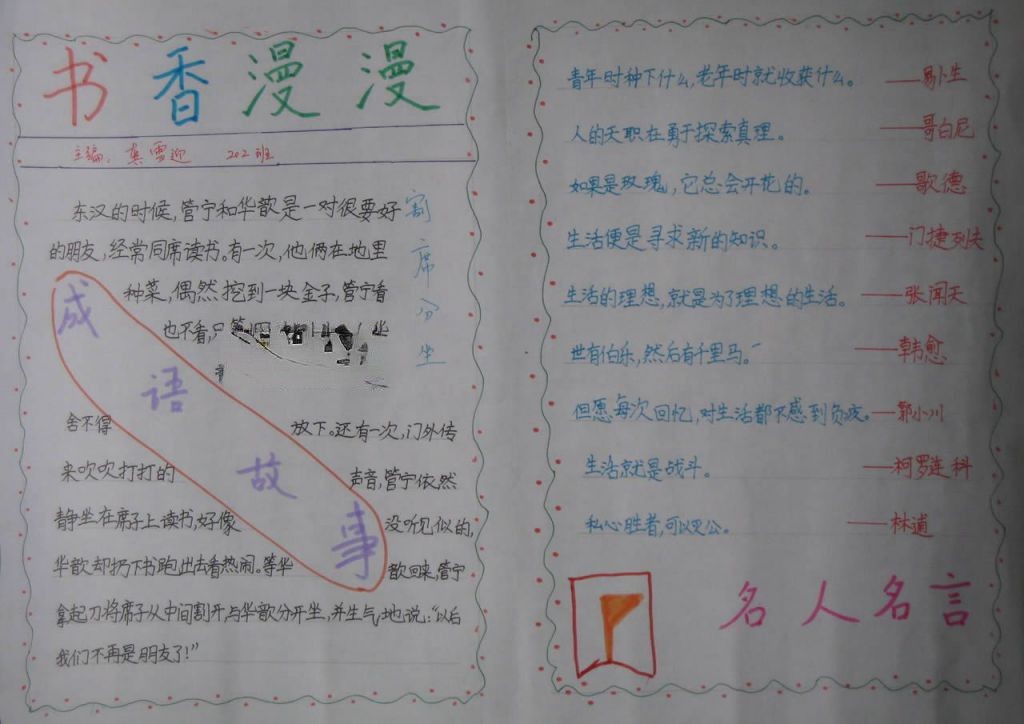 书香漫漫
主编：龚雪迎 202班
割席分坐
东汉的时候，管宁和华歆是一对很要好
的朋友，经常同席读书。有一次，他俩在地里
种菜，偶然挖到一块金子，管宁看
也不看，只
舍不得 放下。还有一次，门外传
来吹吹打打的 声音，管宁依然
静坐在席子上读书，好像 没听见似的，
华歆却扔下书跑出去看热闹。等华 歆回来，管宁
拿起刀将席子从中间割开，与华歆分开坐，并生气地说：“以后
我们不再是朋友了！”
成语故事
青年时种下什么，老年时就收获什么。——易卜生
人的天职在勇于探索真理。——哥白尼
如果是玫瑰，它总会开花的。——歌德
生活便是寻求新的知识。——门捷列夫
生活的理想，就是为了理想的生活。——张闻天
世有伯乐，然后有千里马。——韩愈
但愿每次回忆，对生活都不感到负疚。—郭小川
生活就是战斗。——柯罗连科
私心胜者，可以灭公。——林逋
名人名言